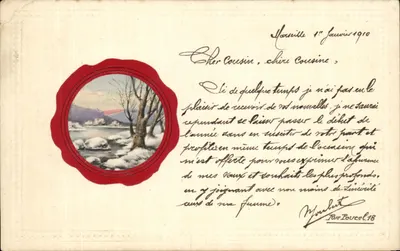 Marseille 1er Janvier 1910
Cher Cousin, chère Cousine,
de quelque temps je n'ai pas eu le
plaisir de recevoir de vos nouvelles, je ne saurai
cependant laisser passer le début de
l'année sans en de votre part et
en même temps de l'occasion qui
m'est offerte pour vous exprimer
de mes vœux et souhaits les plus profonds,
en y joignant avec non moins de sincérité
ceux de ma femme.
18